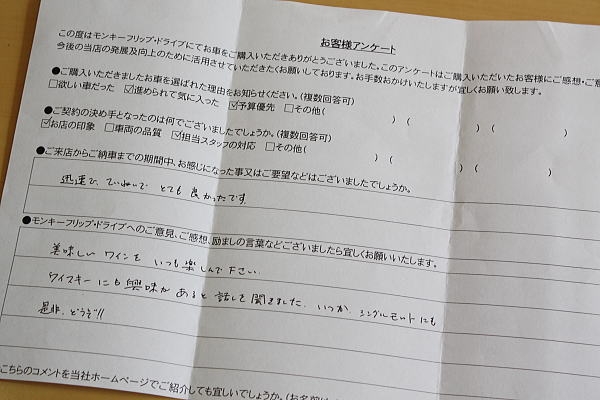 お客様アンケート
この度はモンキーフリップ・ドライブにてお車をご購入いただきありがとうございました。このアンケートはご購入いただいたお客様にご感想・ご意
今後の当店の発展及向上のために活用させていただきたくお願いしております。お手数おかけいたしますが宜しくお願い致します。
●ご購入いただきましたお車を選ばれた理由をお知らせください。(複数回答可)
□欲しい車だった ☑進められて気に入った ☑予算優先 □その他( ) ( ) ( )
●ご契約の決め手となったのは何でございましたでしょうか。(複数回答可)
☑お店の印象 □車両の品質 ☑担当スタッフの対応 □その他( ) ( ) ( )
●ご来店からご納車までの期間中、お感じになった事又はご要望などはございましたでしょうか。
迅速で、ていねいで とても 良かったです。
●モンキーフリップ・ドライブへのご意見、ご感想、励ましの言葉などございましたら宜しくお願いいたします。
美味しい ワインを いつも 楽しんで 下さい。
ウイスキーにも 興味が あると 話しを 聞きました。いつか、シングルモルトにも
是非、どうぞ!!
こちらのコメントを当社ホームページでご紹介しても宜しいでしょうか。(お名前は